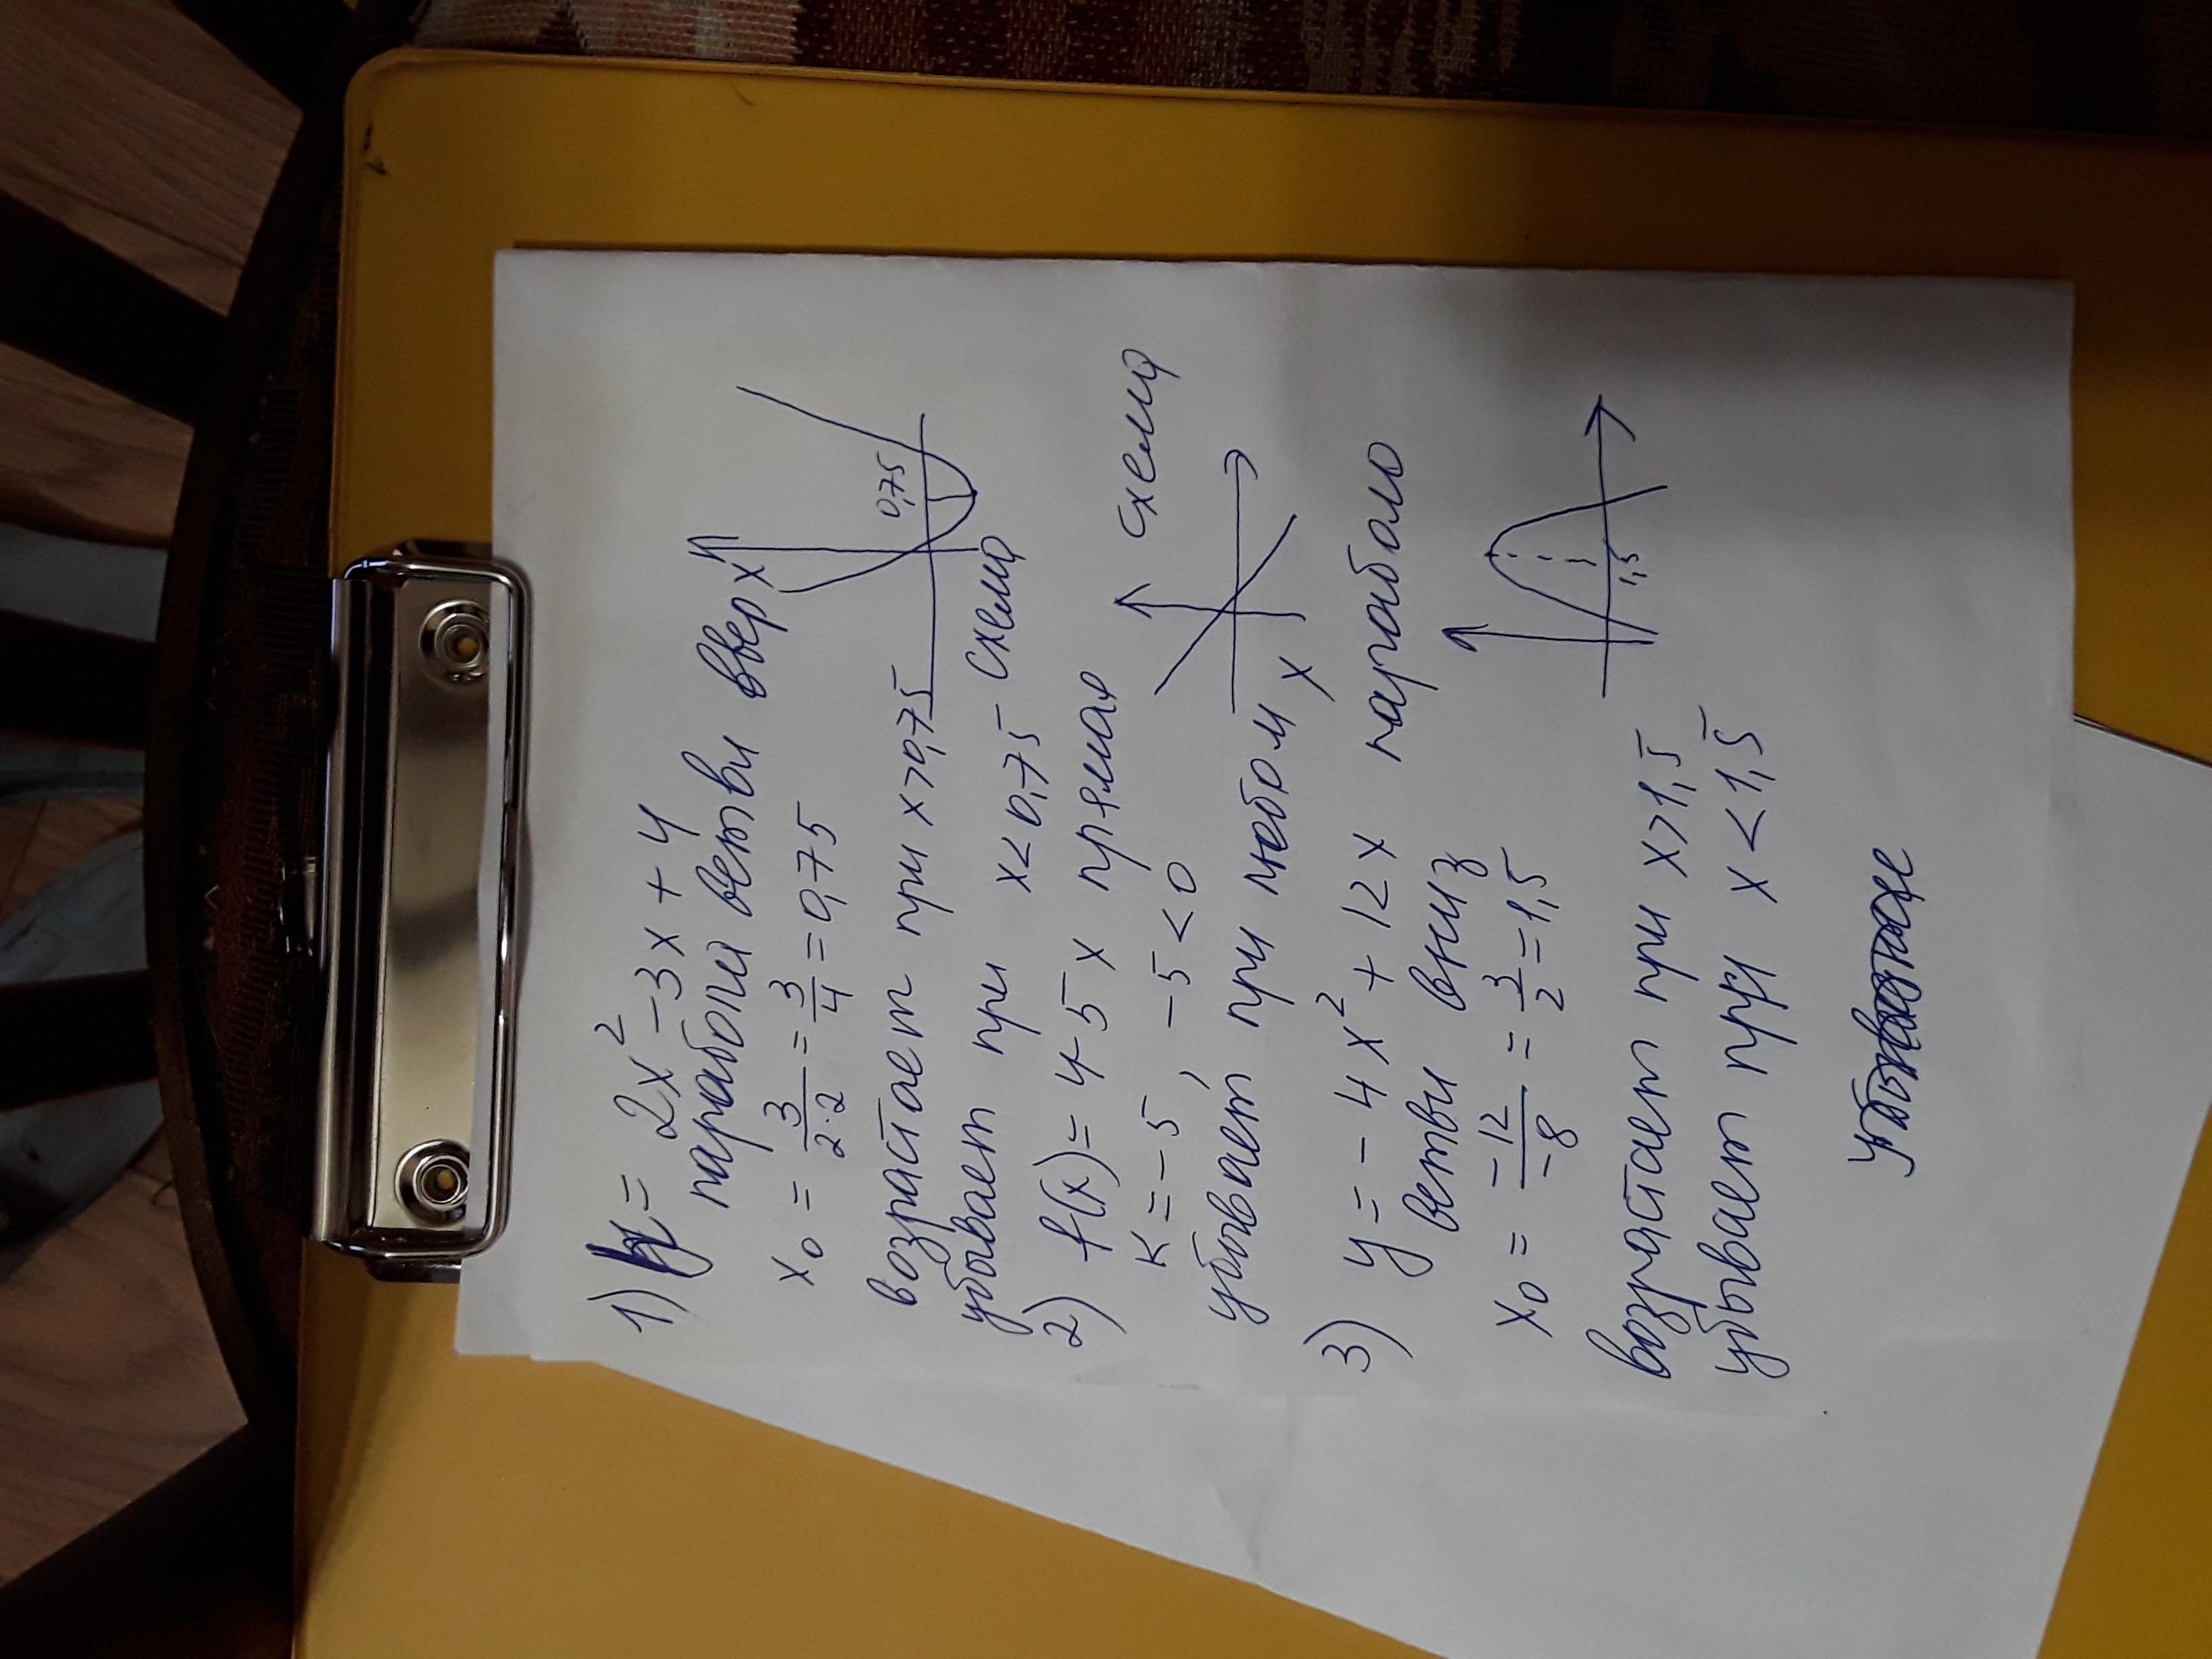 1) y = 2x² - 3x + 4
параболи ветви вверх
x₀ = 3/2·2 = 3/4 = 0,75
0,75
возрастает при x>0,75
убывает при x<0,75 схема
2) f(x) = 4-5x прямая схема
к = -5, -5<0
убывает при любом x
3) y = -4x² + 12x парабола
ветви вниз
x₀ = -12/-8 = 3/2 = 1,5
1,5
возрастает при x>1,5
убывает при x<1,5